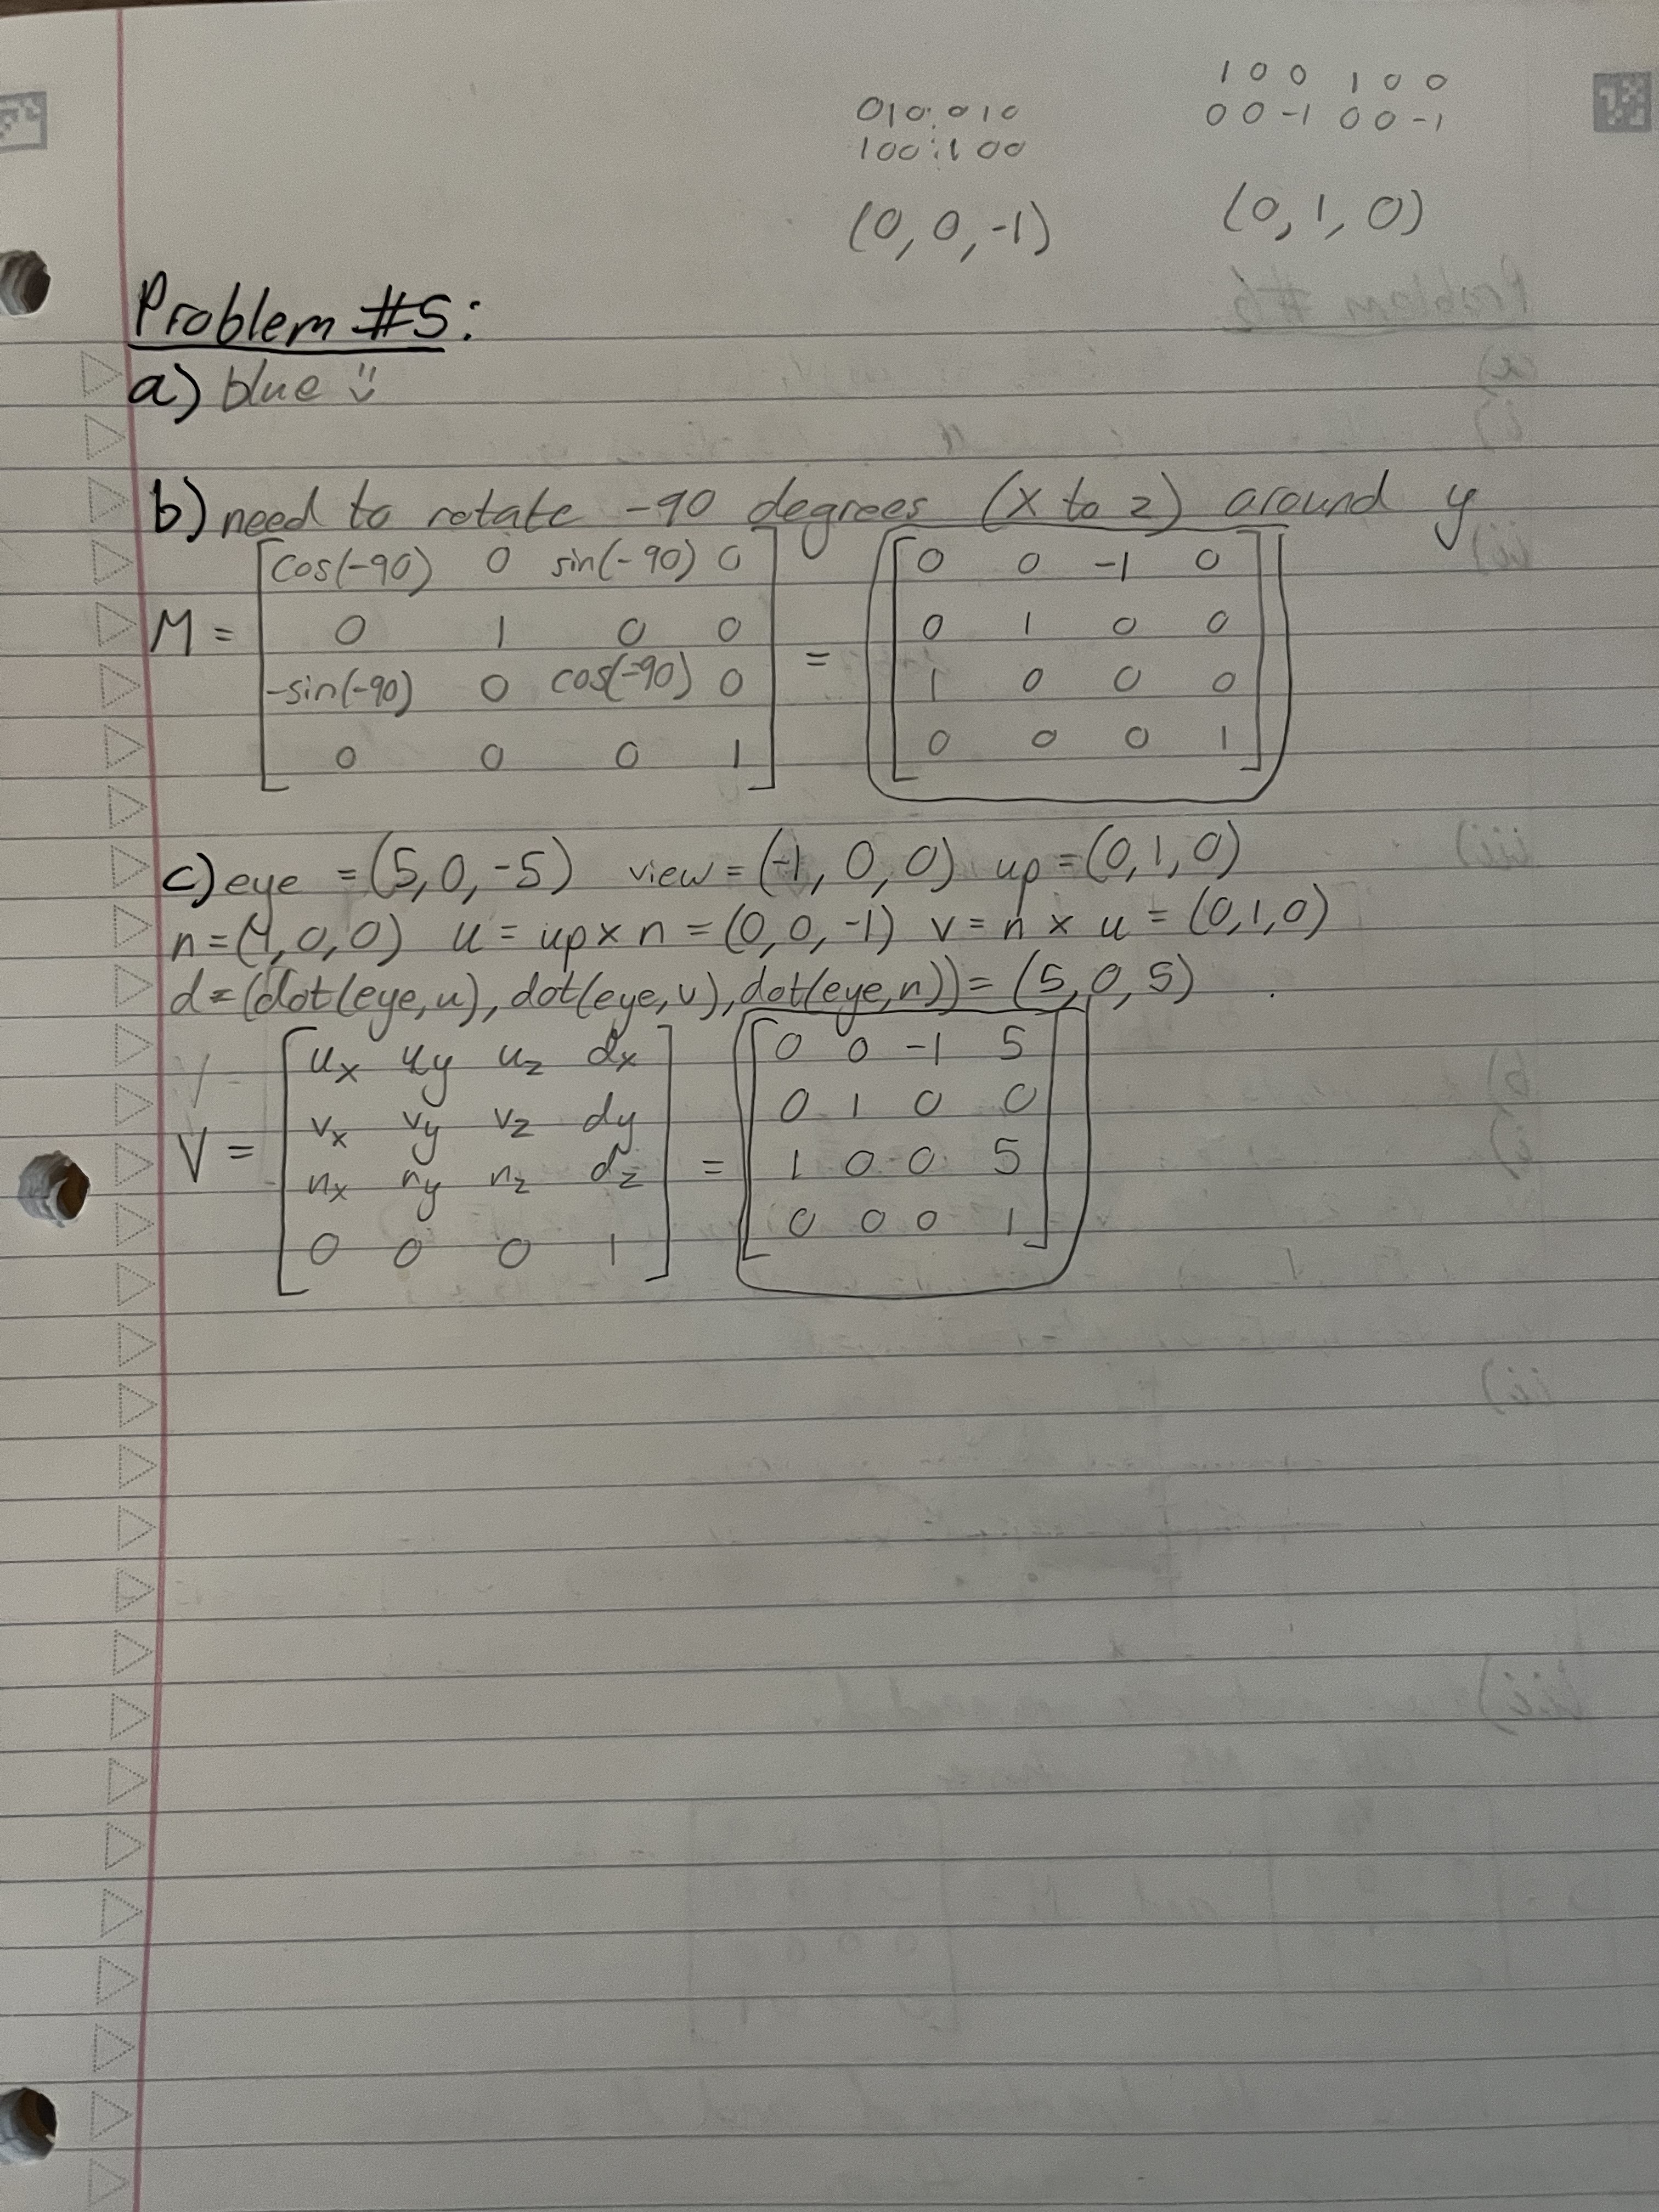 1 0 0 1 0 0
0 0 -1 0 0 -1
0 1 0 : 0 1 0
1 0 0 : 1 0 0
(0, 0, -1) (0, 1, 0)
Problem #5:
a) blue :)
b) need to rotate -90 degrees (x to z) around y
M = [cos(-90) 0 sin(-90) 0
0 1 0 0
-sin(-90) 0 cos(-90) 0
0 0 0 1]
= [0 0 -1 0
0 1 0 0
1 0 0 0
0 0 0 1]
c) eye = (5, 0, -5) view = (-1, 0, 0) up = (0, 1, 0)
n = (1, 0, 0) u = up x n = (0, 0, -1) v = n x u = (0, 1, 0)
d = (dot(eye, u), dot(eye, v), dot(eye, n)) = (5, 0, 5)
V = [ux uy uz dx
vx vy vz dy
nx ny nz dz
0 0 0 1]
= [0 0 -1 5
0 1 0 0
1 0 0 5
0 0 0 1]